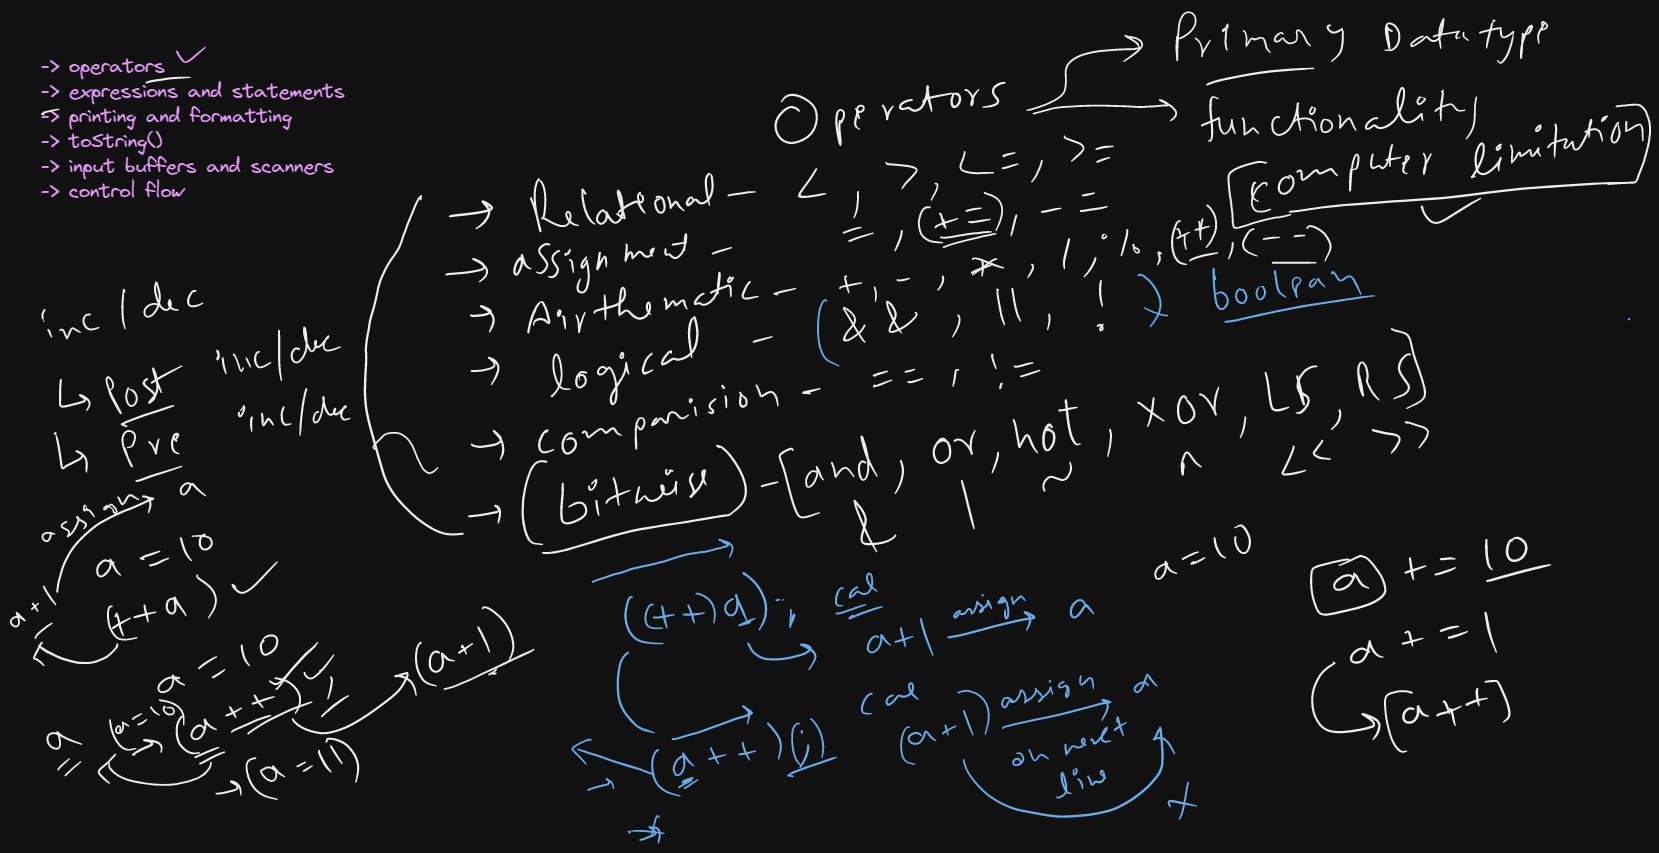 -> operators
-> expressions and statements
-> printing and formatting
-> toString()
-> input buffers and scanners
-> control flow
Operators
Primary Datatype
functionality
computer limitation
-> Relational - <, >, <=, >=
-> assignment - =, (+=), -=
-> Airthematic - +, -, *, /, %, (++), (--)
-> logical - (&&, ||, !) boolean
-> comparision - ==, !=
-> (bitwise) - [and, or, not, xor, LS, RS]
& | ~ ^ << >>
inc / dec
Post inc/dec
Pre inc/dec
assign a
a = 10
a+1 (++a)
a = 10
a (a=10) (a++); (a+1)
-> (a=11)
((++)a); cal
a+1 assign a
(a++)(;) cal
(a+1) assign a
on next
line
a=10
a += 10
a += 1
[a++]